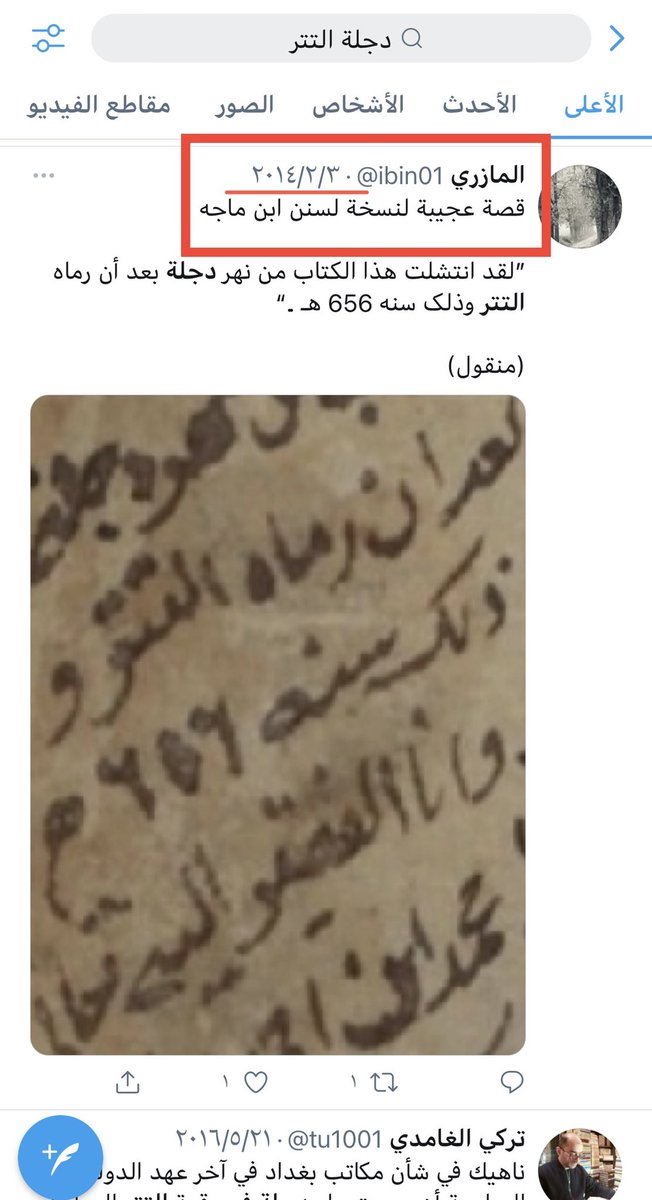 دجلة التتر
الأعلى الأحدث الأشخاص الصور مقاطع الفيديو
المازري @ibin01 · ٢٠١٤/٢/٣
قصة عجيبة لنسخة لسنن ابن ماجه
”لقد انتشلت هذا الكتاب من نهر دجلة بعد أن رماه
التتر وذلك سنه 656 هـ ـ“
(منقول)
بعد ان رماه التتر و
ذلك سنه ٦٥٦ هـ
وانا الفقير اليه تعالى
محمد ابن
١ ١
تركي الغامدي @tu1001 · ٢٠١٦/٥/٢١
ناهيك في شأن مكاتب بغداد في آخر عهد الدول